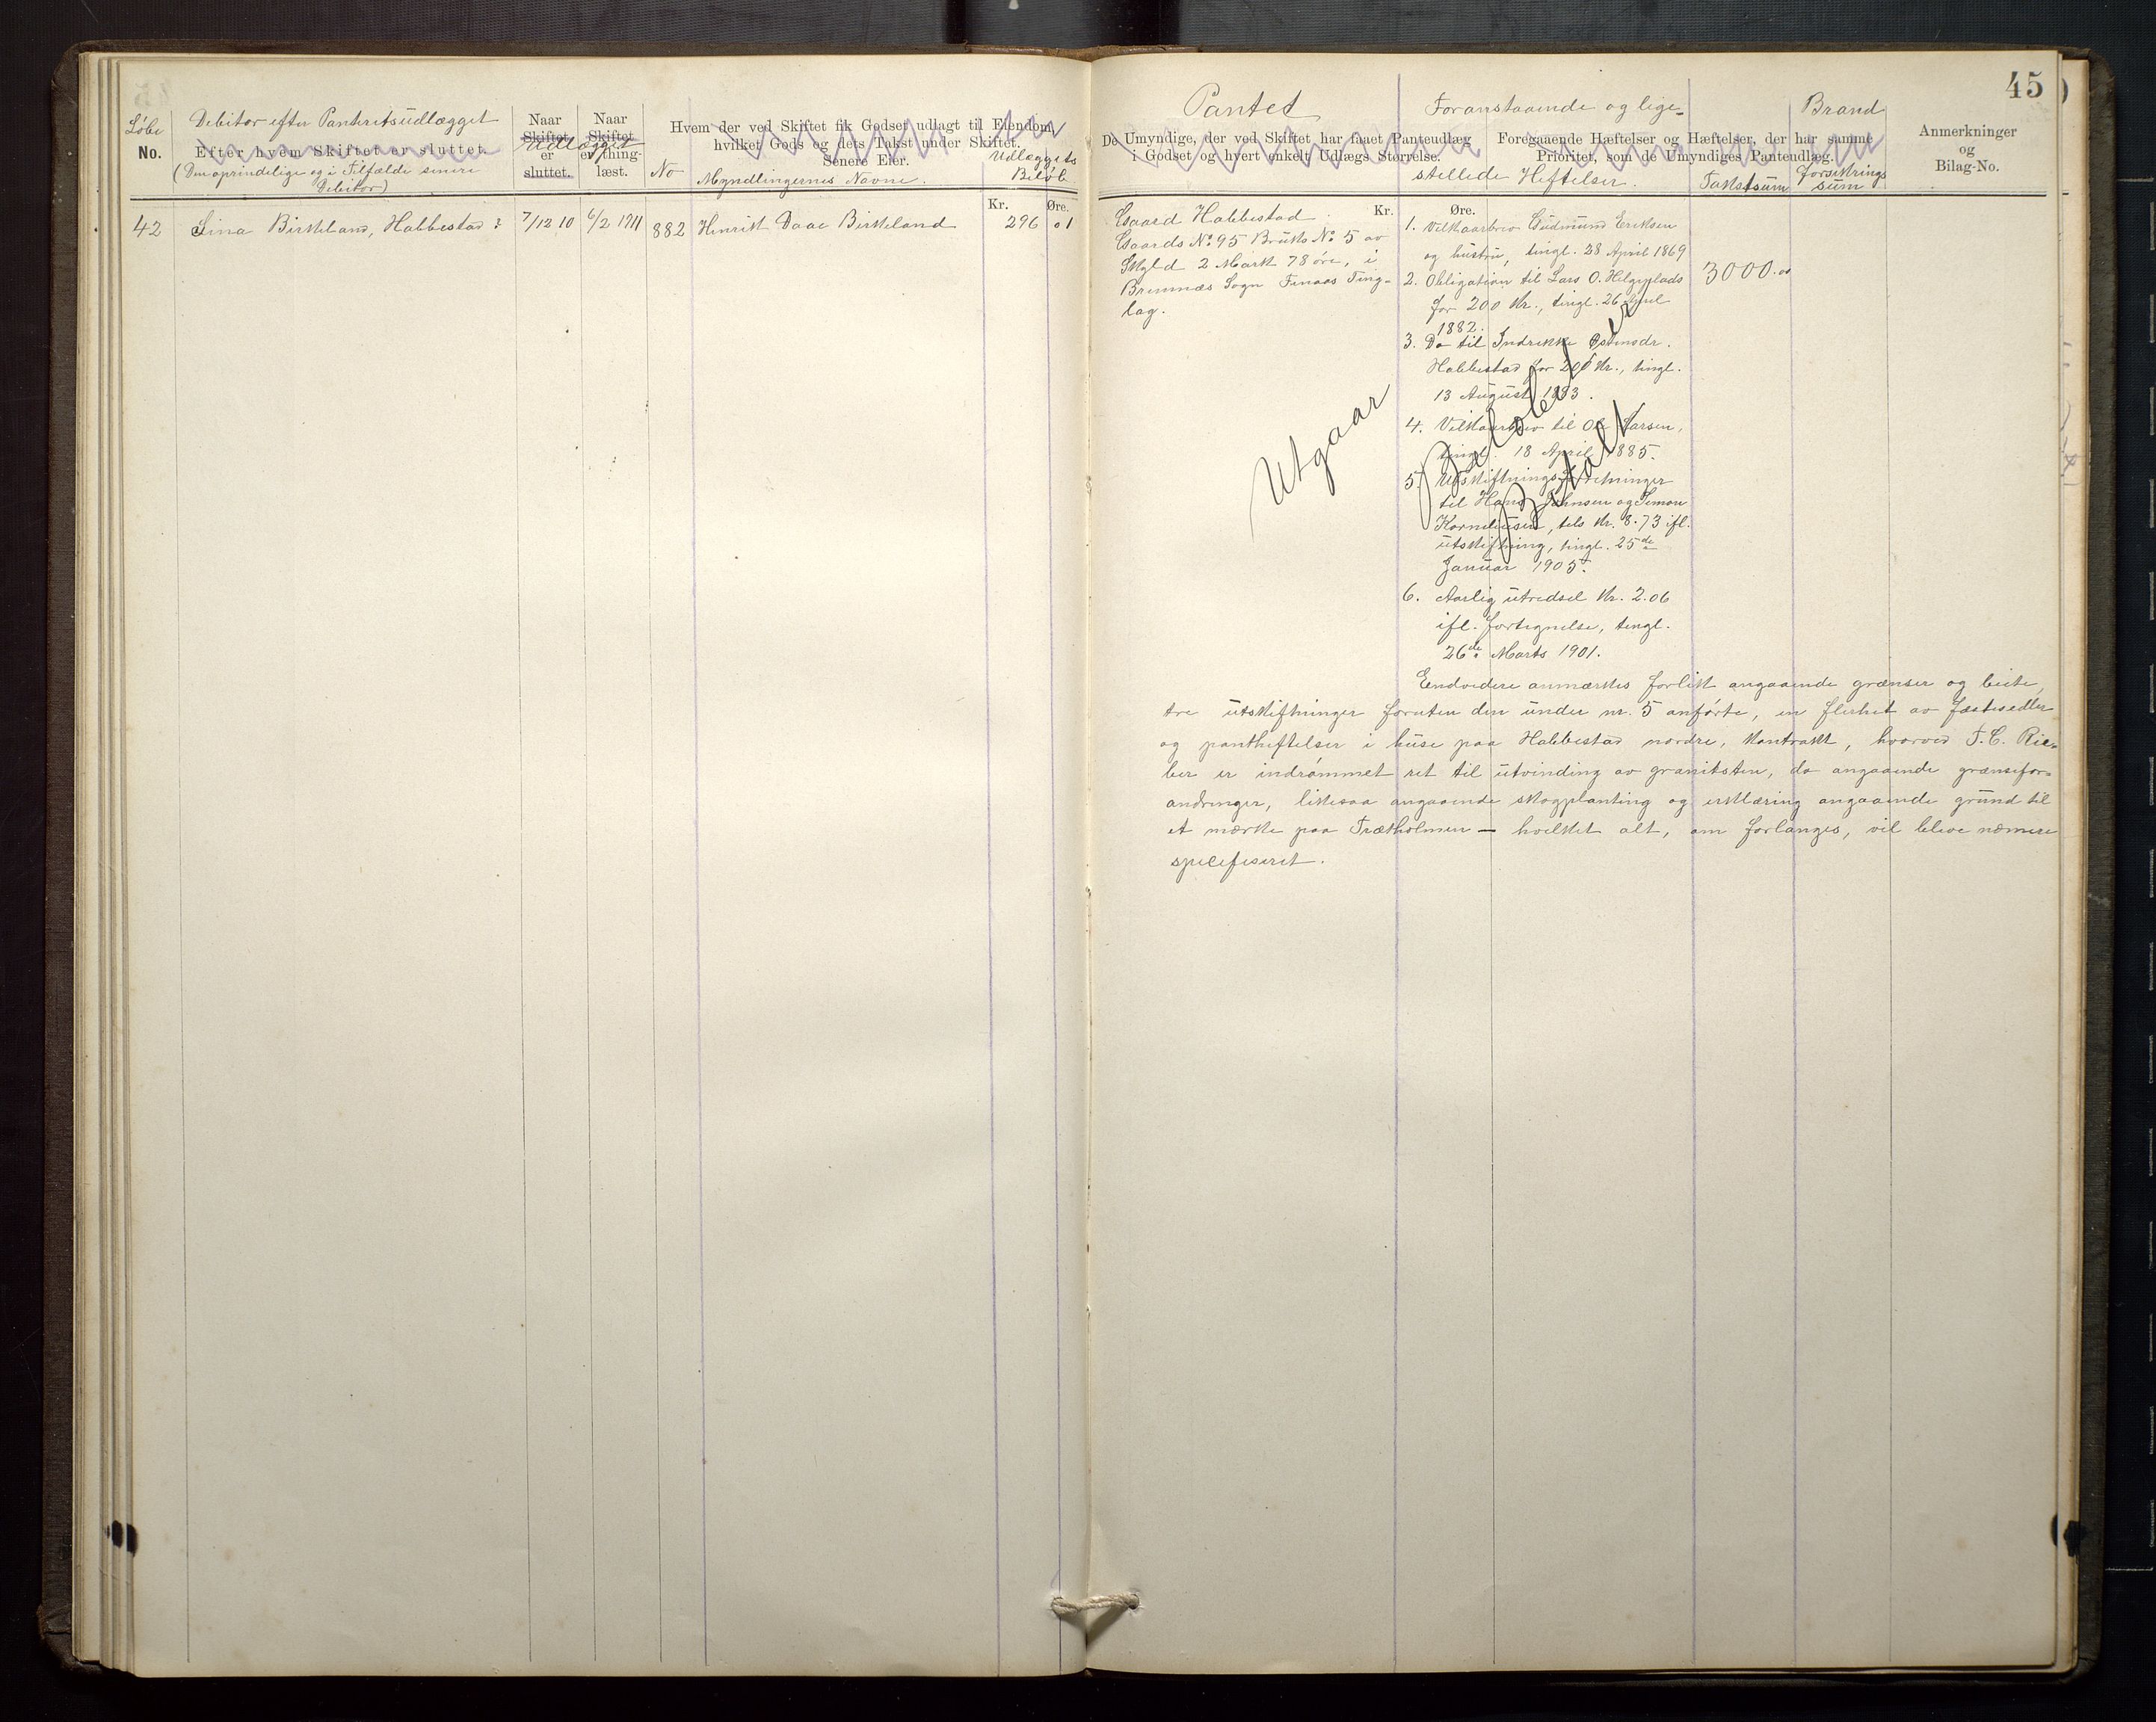 45
Løbe
No.
Debitor efter Panteretsudlægget
Efter hvem Skiftet er sluttet.
(Den oprindelige og i Tilfælde senere
Debitor)
Naar
Skiftet
Udlægget
er
sluttet.
Naar
Skiftet
er thing-
læst.
No
Hvem der ved Skiftet fik Godset udlagt til Eiendom,
hvilket Gods og dets Takst under Skiftet.
Senere Eier.
Myndlingernes Navne.
Udlæggets
Beløb
Kr. Øre.
Pantet
De Umyndige, der ved Skiftet har faaet Panteudlæg
i Godset og hvert enkelt Udlægs Størrelse.
Kr. Øre.
Foranstaaende og lige-
Foregaaende Hæftelser og Hæftelser, der har samme
Prioritet, som de Umyndiges Panteudlæg.
stillede Heftelser.
Takstsum
Brand
forsikrings
sum
Anmerkninger
og
Bilag-No.
42 Sina Birkeland, Habbestad: 7/12 10 6/2 1911 882 Henrik Daae Birkeland 296 01
Gaard Habbestad
Gaards No 95 Bruks No 5 av
Skyld 2 Mark 78 øre, i
Bremnæs Sogn Finaas Ting-
lag.
Utgaar
1. Vilkaarbrev Gudmund Eriksen
og hustru, tingl. 28 April 1869
2. Obligation til Lars O. Helgeplads
for 200 Kr., tingl. 26 April
1882.
3. Do til Indrikke Østensdr.
Habbestad for 200 Kr., tingl.
13 August 1883.
4. Vilkaarbrev til Ole Larsen,
tingl. 18 April 1885.
5. Utskiftningsforretninger
til Hans Johnsen og Simon
Korneliusen, tils Kr. 8.73 ifl.
utskiftning, tingl. 25de
Januar 1905.
6. Aarlig utredsel Kr. 2.06
ifl. fortegnelse, tingl.
26de Marts 1901.
Betalt
3000.00
Endvidere anmærkes forlik angaaende grænser og beite,
tre utskiftninger foruten den under nr. 5 anførte, en flerhet av fæstesedler
og pantheftelser i huse paa Habbestad nordre, kontrakt, hvorved T. C. Rie-
ber er indrømmet ret til utvinding av granitsten, do angaaende grænsefor-
andringer, likesaa angaaende skogplanting og erklæring angaaende grund til
et mærke paa Trætholmen — hvilket alt, om forlanges, vil blive nærmere
spesifiseret.